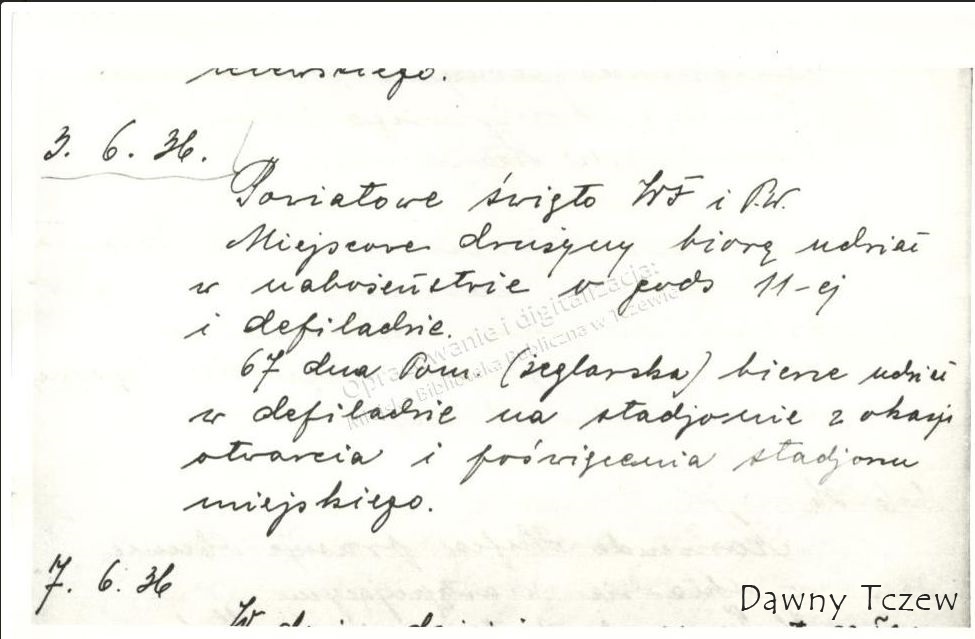 3. 6. 36.
Powiatowe święto WF i P.W.
Miejscowe drużyny biorą udział
w nabożeństwie o godz 11-ej
i defiladzie.
67 dna Pom. (żeglarska) bierze udział
w defiladzie na stadjonie z okazji
otwarcia i poświęcenia stadjonu
miejskiego.
7. 6. 36
W
Opracowanie i digitalizacja:
Miejska Biblioteka Publiczna w Tczewie
Dawny Tczew